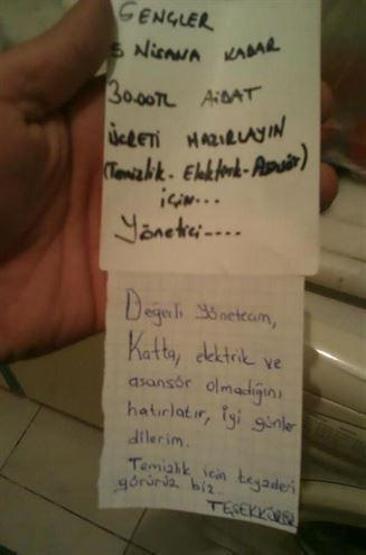 GENÇLER
5 NİSANA KADAR
30.00TL AİDAT
ÜCRETİ HAZIRLAYIN
(Temizlik - Elektirik - Asansör)
İÇİN...
Yönetici....
Değerli Yöneticim,
Katta, elektrik ve
asansör olmadığını
hatırlatır, iyi günler
dilerim.
Temizlik için tegaderi
görürüz biz.
TEŞEKKÜRLER